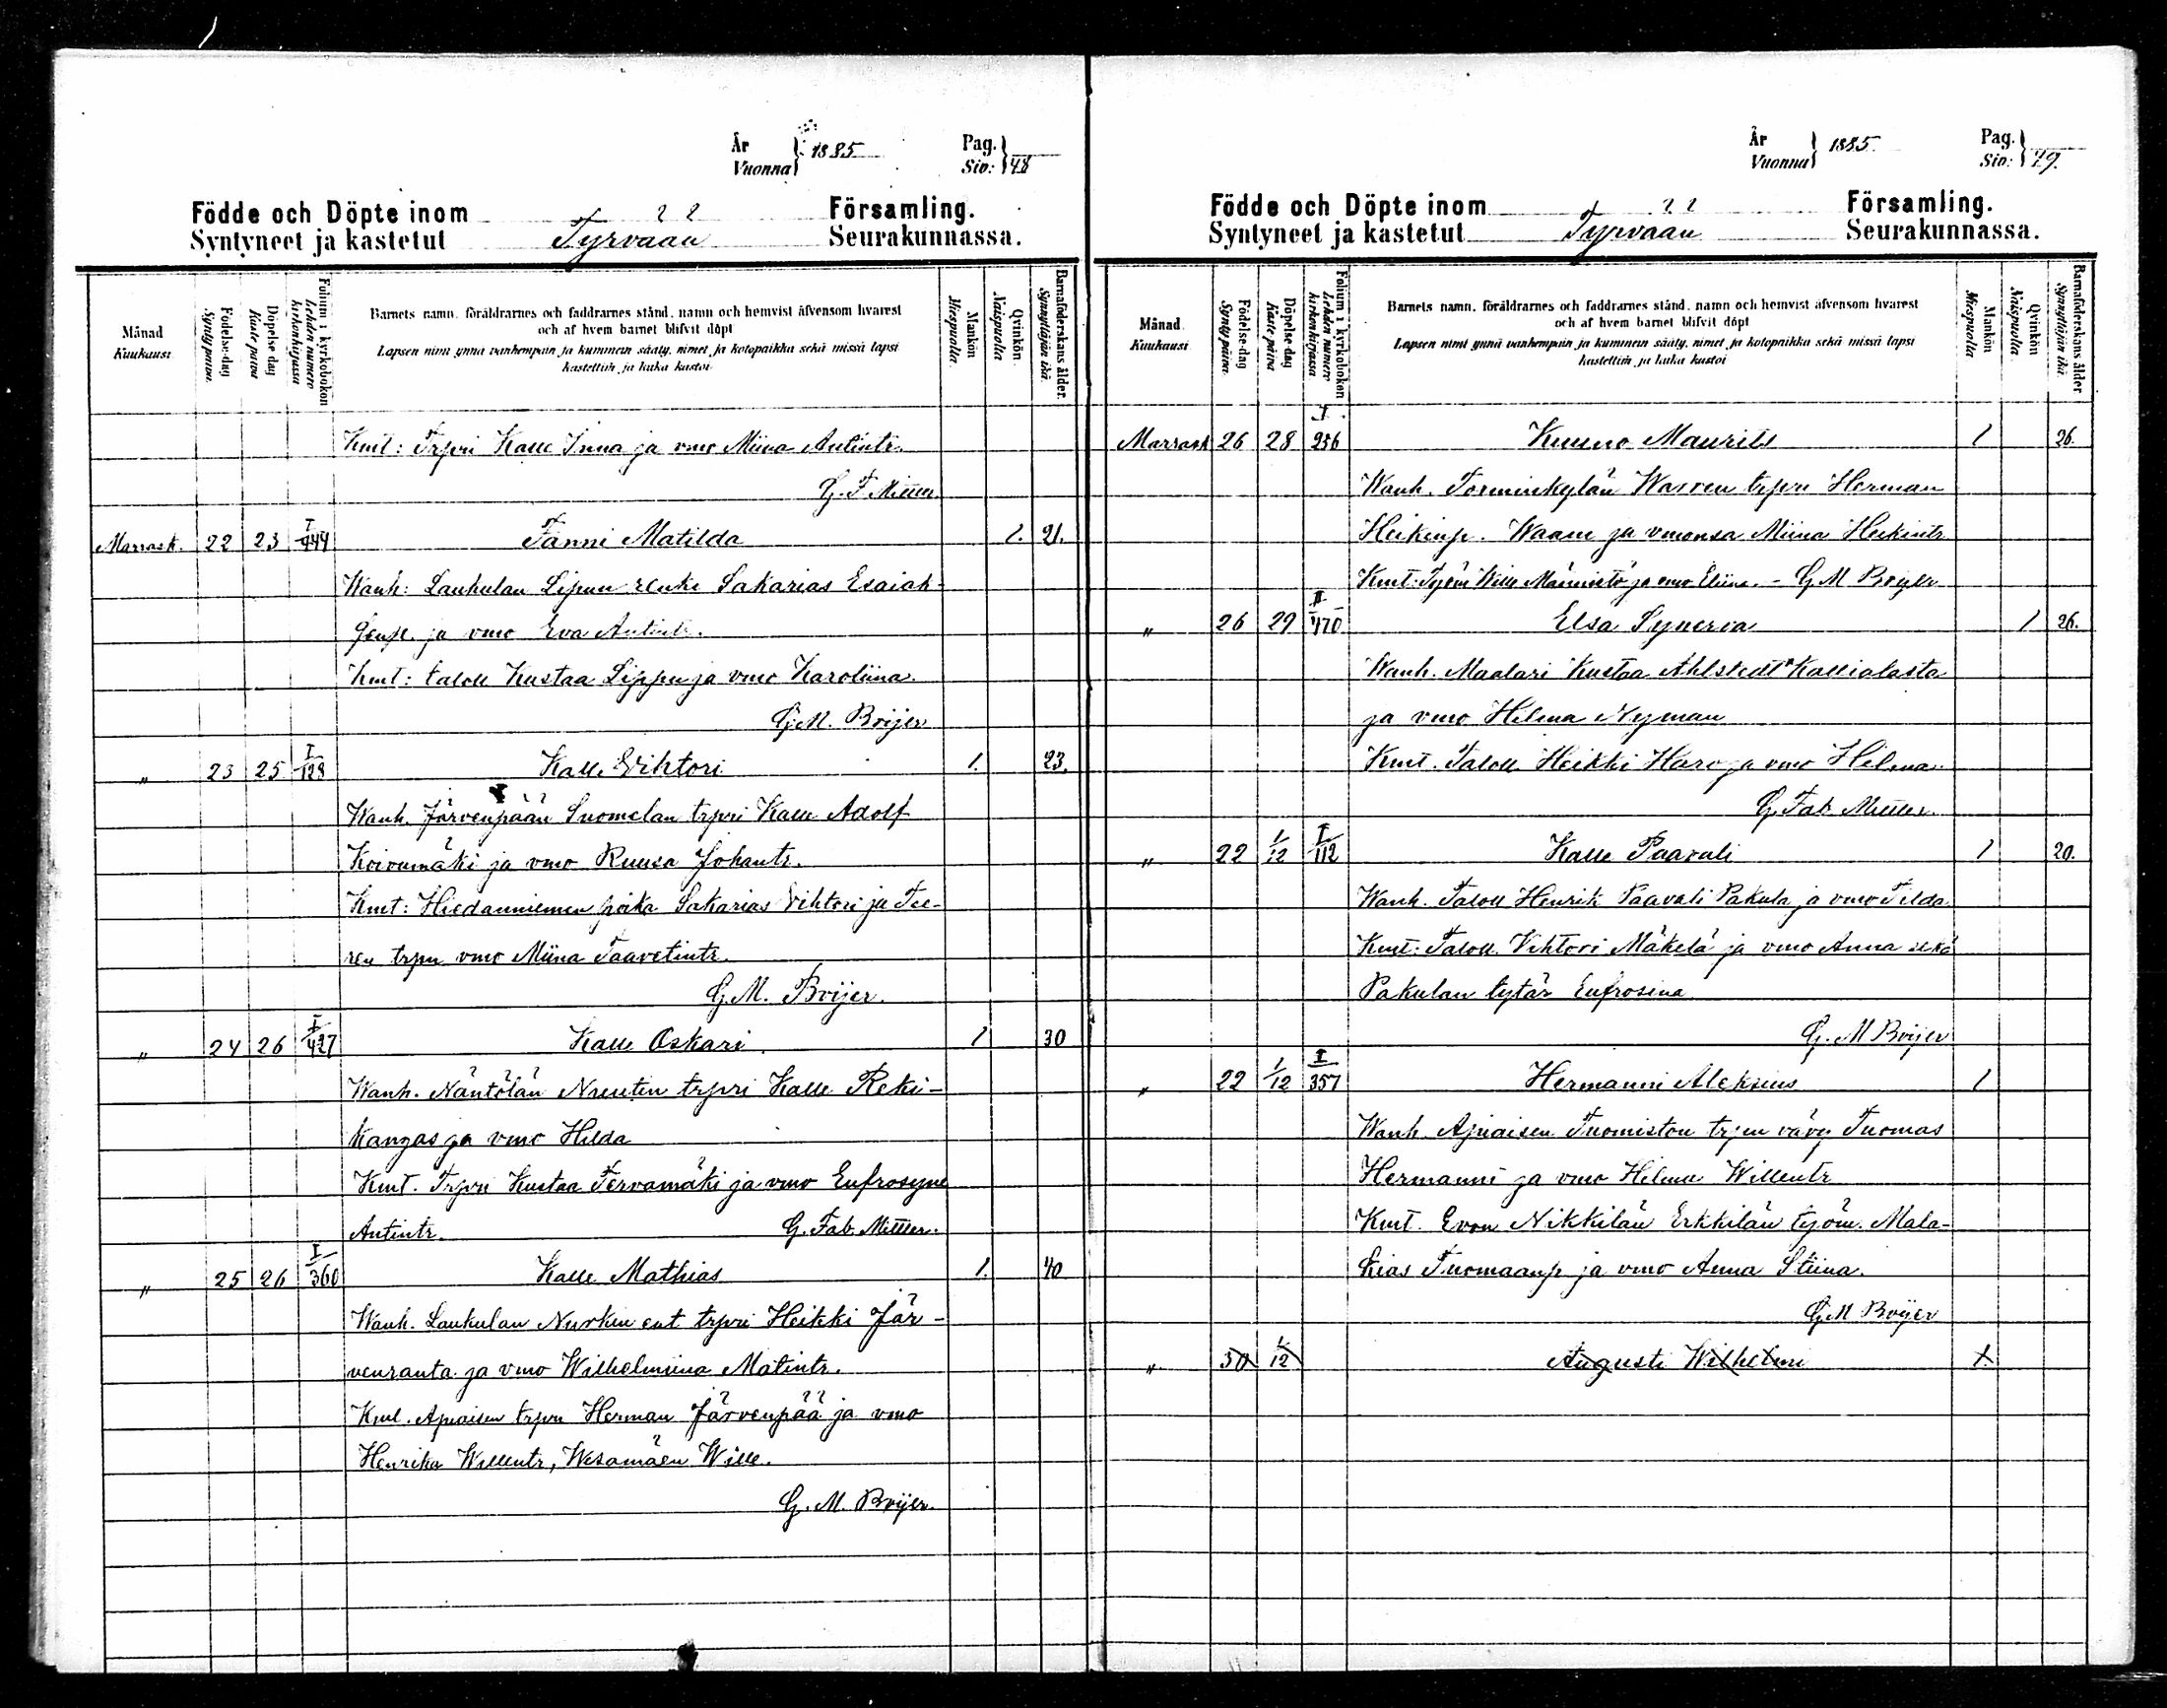 År Vuonna 1885 Pag. Siv: 48
Födde och Döpte inom Församling.
Syntyneet ja kastetut Tyrvään Seurakunnassa.
Månad Kuukausi
Födelse-dag Synty päivä.
Döpelse dag Kaste päivä
Folium i kyrkoboken Lehden numero kirkonkirjassa
Barnets namn, föräldrarnes och faddrarnes stånd, namn och hemvist äfvensom hvarest
och af hvem barnet blifvit döpt
Lapsen nimi ynnä vanhempain ja kummein sääty, nimet ja kotopaikka sekä missä lapsi
kastettiin ja kuka kastoi
Mankön Miespuolta.
Qvinkön Naispuolta
Barnaföderskans ålder. Synnyttäjän ikä.
Kmt: Trpri Kalle Inna ja vmo Miina Antintr.
G. F. Mittler
Marrask. 22 23 I 444 Fanni Matilda 1. 21.
Wanh: Laukulan Lipun renki Sakarias Esaiak-
ja vmo Eva Antintr.
Kmt: taloll Kustaa Lippu ja vmo Karoliina.
G. M. Boijer
„ 23 25 I 128 Kalle Vihtori 1. 23.
Wanh. Järvenpään Suomelan trpri Kalle Adolf
Koivumäki ja vmo Ruusa Johantr.
Kmt: Hiedanniemen poika Sakarias Vihtori ja Tee-
ren trpn vmo Miina Taavetintr.
G. M. Boijer.
„ 24 26 I 427 Kalle Oskari 1 30
Wanh. Näntölän Nuutin trpri Kalle Reki-
kangas ja vmo Hilda
Kmt. Trpri Kustaa Tervamäki ja vmo Eufrosyne
Antintr. G. Fab. Mittler.
„ 25 26 I 360 Kalle Mathias 1. 40
Wanh. Laukulan Nurkin ent trpri Heikki Jär-
venranta ja vmo Wilhelmiina Matintr.
Kmt. Apiaisen trpri Herman Järvenpää ja vmo
Henrika Willentr, Wesamäen Wille.
G. M. Boijer.
År Vuonna 1885. Pag. Siv: 49.
Födde och Döpte inom Församling.
Syntyneet ja kastetut Tyrvään Seurakunnassa.
Månad Kuukausi
Födelse-dag Synty päivä.
Döpelse-dag Kaste päivä
Folium i kyrkoboken Lehden numero kirkonkirjassa
Barnets namn, föräldrarnes och faddrarnes stånd, namn och hemvist äfvensom hvarest
och af hvem barnet blifvit döpt
Lapsen nimi ynnä vanhempain ja kummein sääty, nimet ja kotopaikka sekä missä lapsi
kastettiin ja kuka kastoi
Mankön Miespuolta
Qvinkön Naispuolta
Barnaföderskans ålder Synnyttäjän ikä.
Marrask 26 28 I 256 Kuuno Maurits 1 26.
Wanh. Torminkylän Warren trpri Herman
Heikinp. Waare ja vmonsa Miina Heikintr
Kmt: Työm Wille Männistö ja vmo Eliina. - G M Boijer
„ 26 29 II 470 Elsa Synerva 1 26.
Wanh. Maalari Kustaa Ahlstedt Kallialasta
ja vmo Helma Nyman
Kmt. Taloll Heikki Haro ja vmo Hilma
G. Fab. Mittler.
„ 22 1/12 I 112 Kalle Paavali 1 20.
Wanh. Taloll Henrik Paavali Pakula ja vmo Tilda
Kmt: Taloll. Vihtori Mäkelä ja vmo Anna sekä
Pakulan tytär Eufrosina
G. M Boijer
„ 22 1/12 I 357 Hermanni Aleksius 1
Wanh. Apiaisen Tuomiston trpen vävy Tuomas
Hermanni ja vmo Hilma Willentr
Kmt. Evon Nikkilän Erkkilän työm. Mala-
kias Tuomaanp ja vmo Anna Stiina.
G. M Boijer
„ 30 1/12 Augusti Wilhelmi 1.